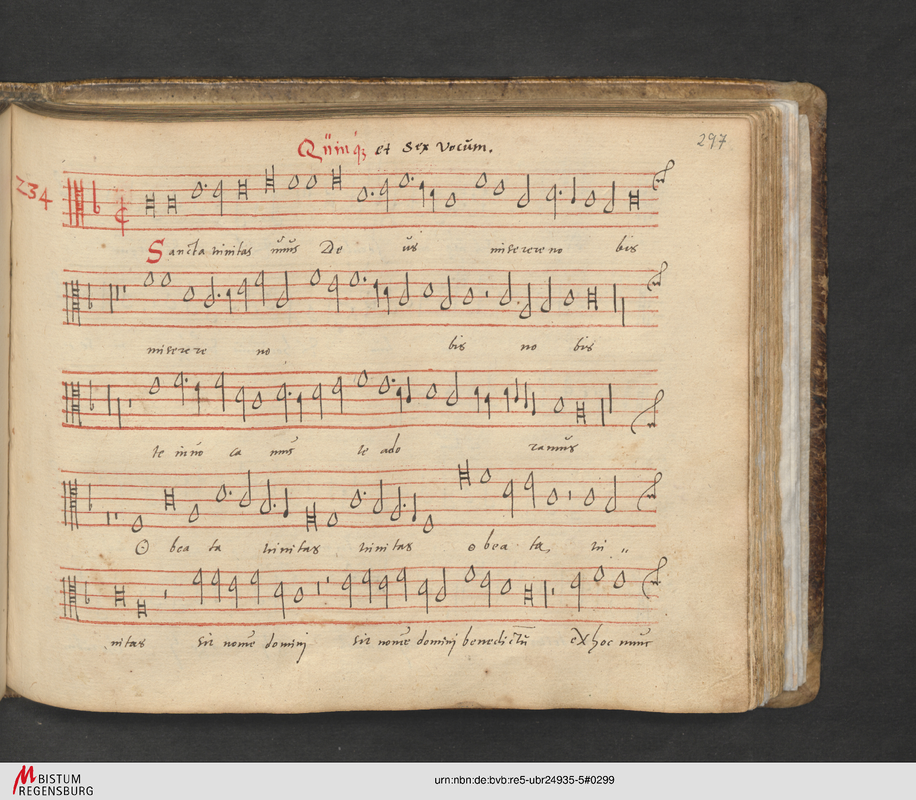 Quinq; et Sex Vocum.
297
234
Sancta trinitas unus De us miserere no bis
miserere no bis no bis
te in no ca mus te ado ramus
O bea ta trinitas trinitas o bea ta, tri „
nitas sit nome domini sit nome domini benedictu ex hoc nunc
BISTUM
REGENSBURG
urn:nbn:de:bvb:re5-ubr24935-5#0299